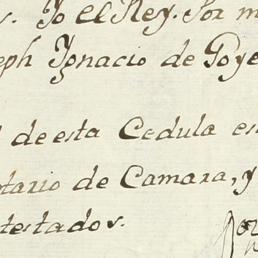 s. Yo el Rey. Por m
eph Ignacio de Goye
l de esta Cedula es
otario de Camara, y
testados.